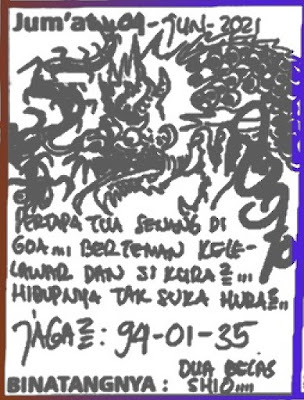 Jum'at, 04-JUN-2021
PERTAPA TUA SENANG DI
GOA... BERTEMAN KELE-
LAWAR DAN SI KURA2....
HIDUPNYA TAK SUKA HURA2..
JAGA2: 94-01-35
DUA BELAS
BINATANGNYA: SHIO.....